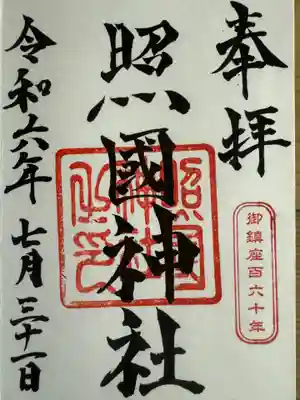 奉拝
照國神社
照國神社之印
御鎮座百六十年
令和六年七月三十一日